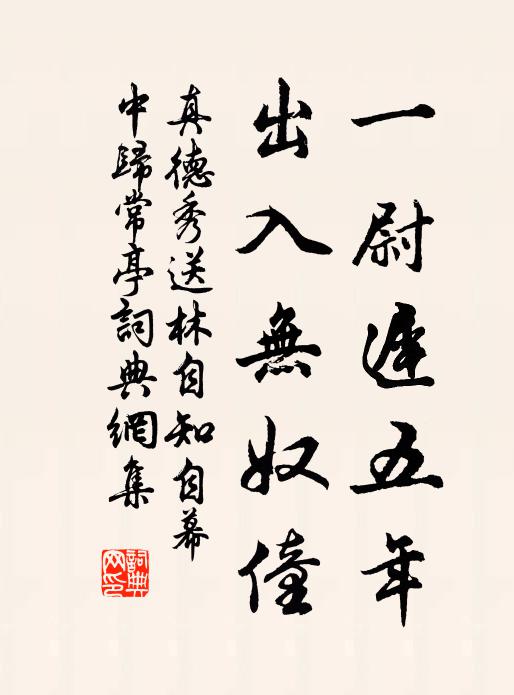 一尉遲五年
出入無奴僮
真德秀送林自知自幕
中歸常亭詞典網集
詞典
网印